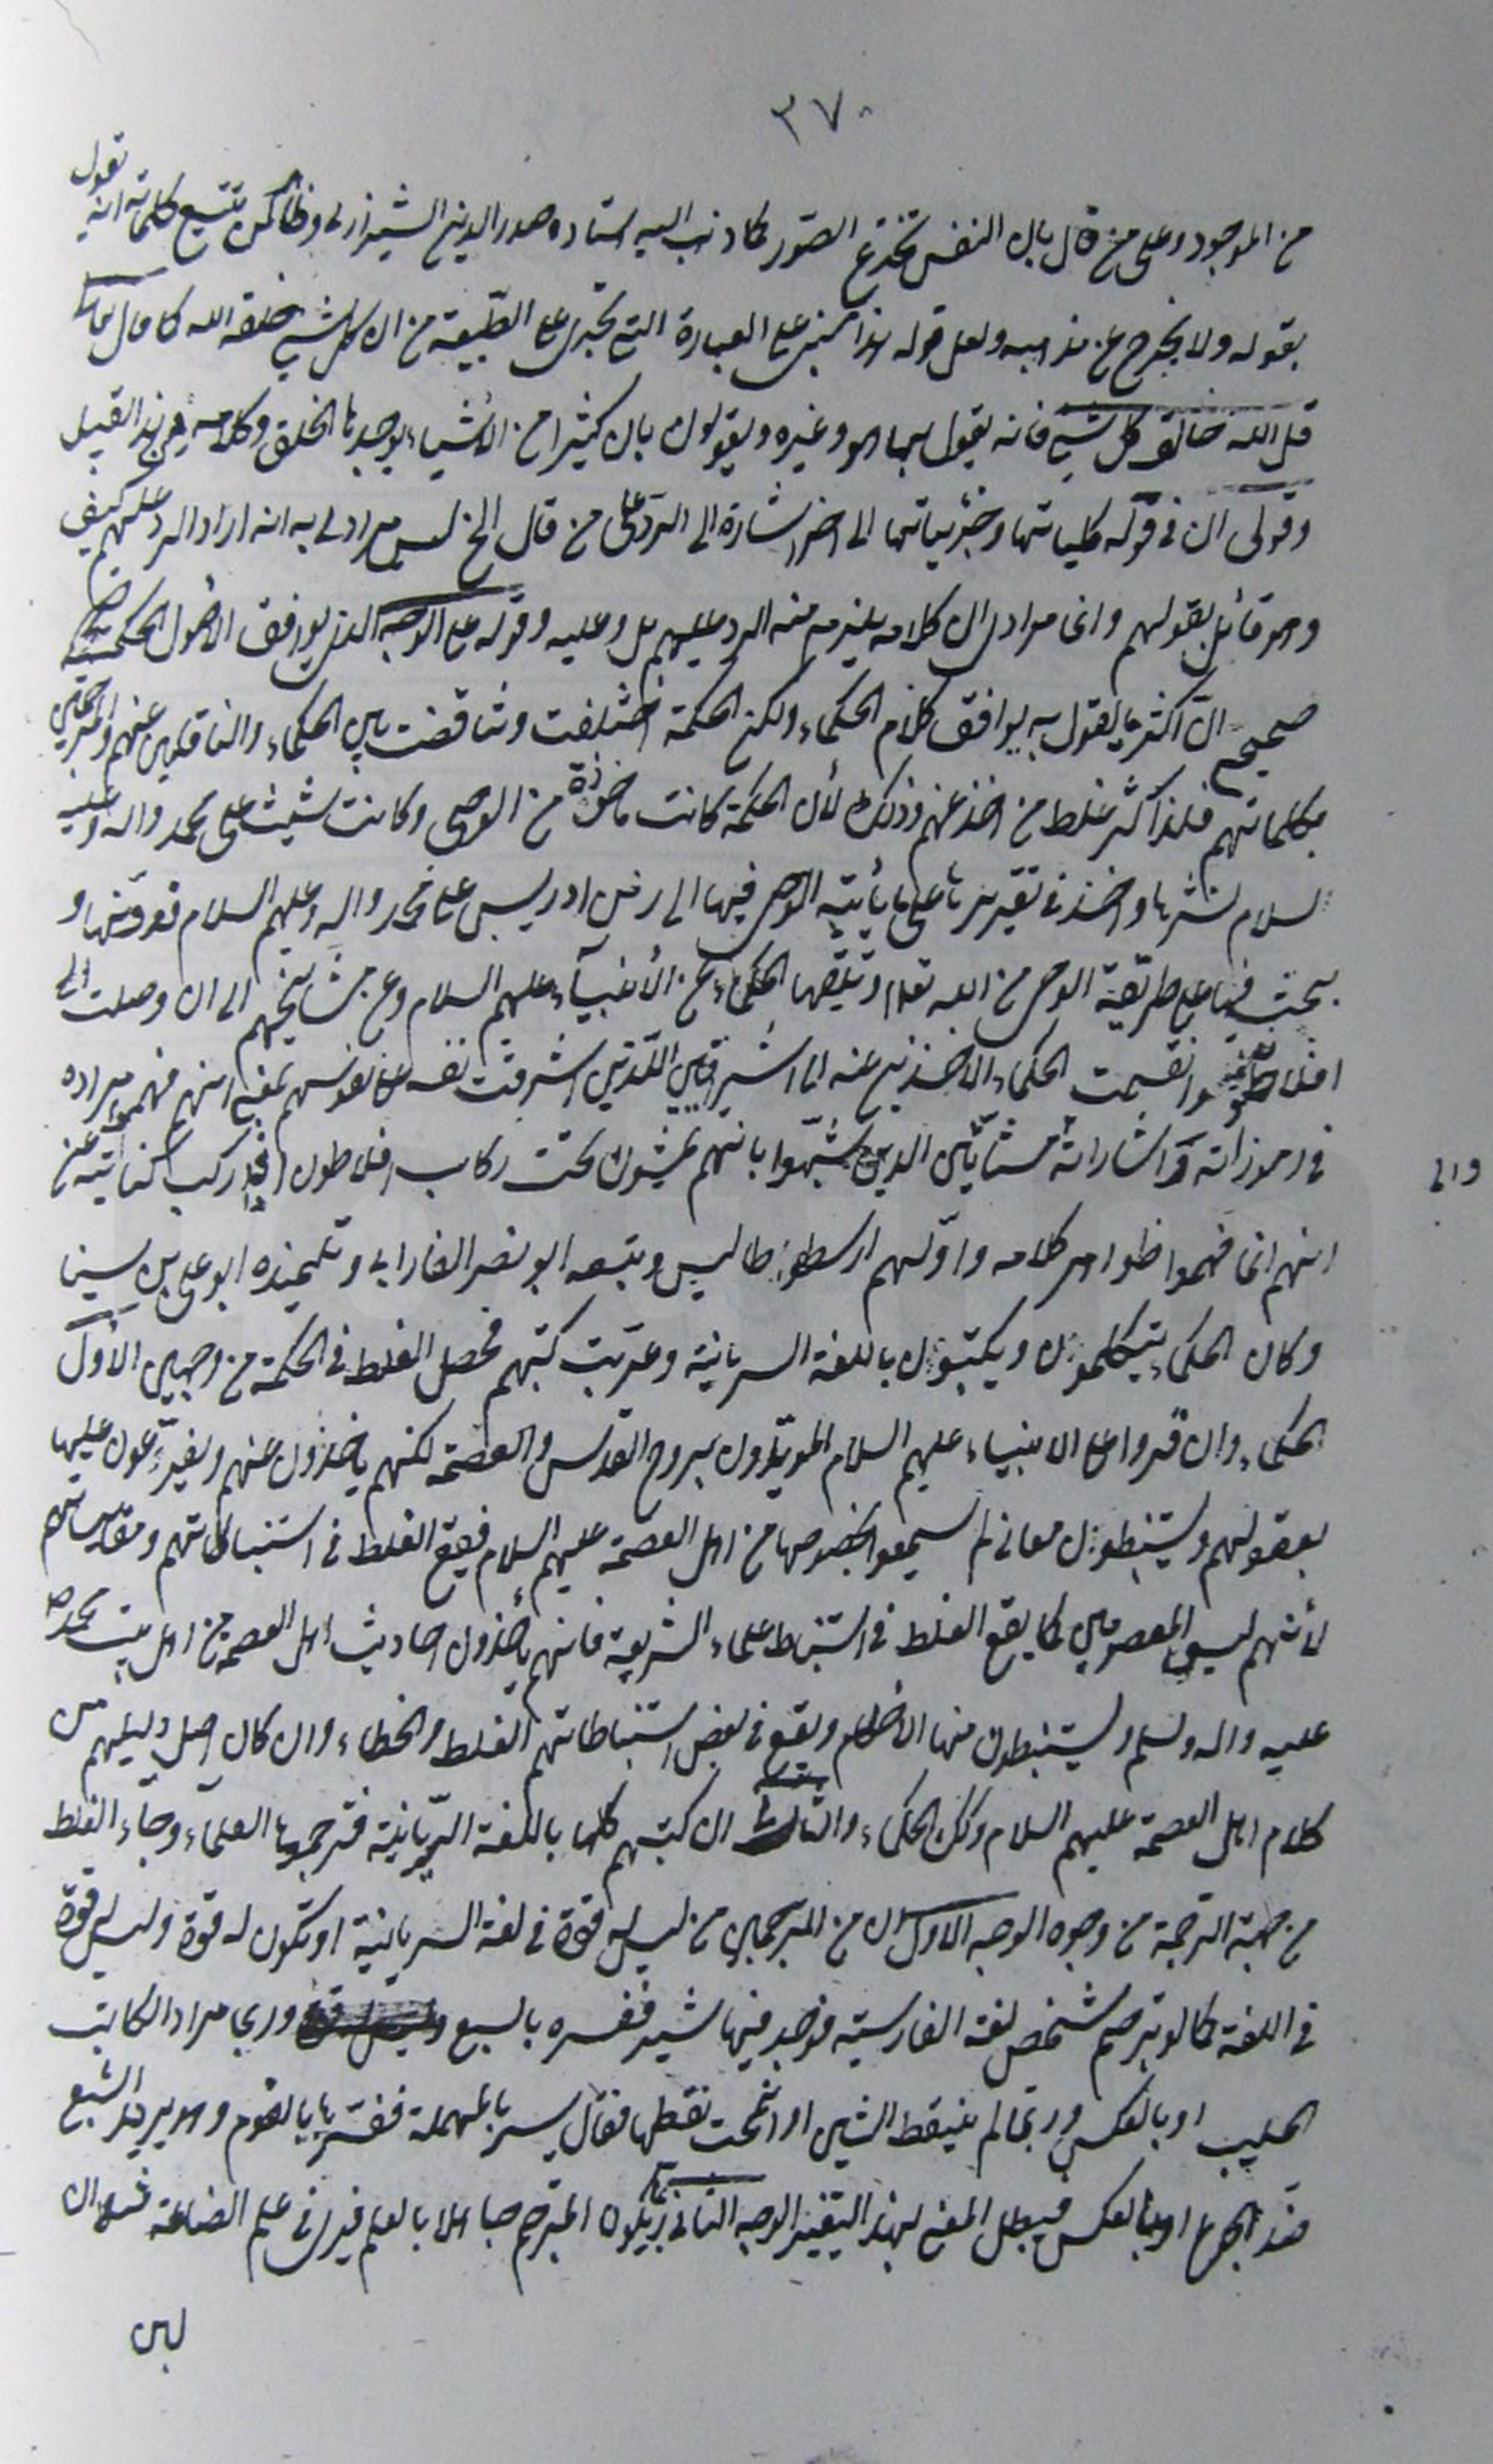 ٣٧٠
من الموجود وعلى من قال بان النفس تخترع الصور كما ذهب اليه استاده صدر الدين الشيرازي وظاهر من تتبع كلماته انه يقول
بقوله ولا يخرج عن مذهبه ولعل قوله هذا مبني على العبارة التي تجري على الطبيعة من ان كل شيء خلقه الله كما قال تعالى
قل الله خالق كل شيء فانه يقول بها هو وغيره ويقولون بان كثيرا من الأشياء يوجدها الخلق وكلامه من هذا القبيل
وقولي ان في قوله كلياتها وجزئياتها الى اخر اشارة الى الرد على من قال الخ ليس مرادي به انه اراد الرد عليهم كيف
وهو قائل بقولهم وانما مرادي ان كلامه يلزم منه الرد عليهم بل وعليه وقوله على الوجه الذي يوافق الأصول الحكمية
صحيح ان اكثر ما يقول به يوافق كلام الحكماء ولكن الحكمة اختلفت وتناقضت بين الحكماء والناقلين عنهم والمترجمين
بكلماتهم فلهذا كثر غلط من اخذ عنهم وذلك لأن الحكمة كانت مأخوذة من الوحي وكانت شيث على محمد واله وعليه
السلام نشرها واخذ في تقريرها على ما يأتيه الوحي فيها الى زمن ادريس على محمد واله وعليهم السلام فعرفها و
بحث فيها على طريقة الوحي من الله تعالى وتلقتها الحكماء عن الأنبياء عليهم السلام وعن مشايخهم الى ان وصلت الى
افلاطون وانقسمت الحكماء الاخذين عنه الى اشراقيين اللذين اشرقت نفسه على نفوسهم بمعنى انهم فهموا مراده
في رموزاته واشاراته والى مشائين الذين شبهوا بانهم يمشون تحت ركاب افلاطون اذا ركب كناية عن
انهم انما فهموا ظواهر كلامه واولهم ارسطوطاليس وتبعه ابو نصر الفارابي وتلميذه ابو علي بن سينا
وكان الحكماء يتكلمون ويكتبون باللغة السريانية وعربت كتبهم فحصل الغلط في الحكمة من وجهين الأول
الحكماء وان قرءوا على الانبياء عليهم السلام المؤيدون بروح القدس والعصمة لكنهم ياخذون عنهم ويفرعون عليها
بعقولهم ويستنبطون معاني لم يسمعوا بخصوصها من اهل العصمة عليهم السلام فيقع الغلط في استنباطاتهم ومقايساتهم
لأنهم ليسوا بمعصومين كما يقع الغلط في استنباط علماء الشريعة فانهم يأخذون احاديث اهل العصمة من اهل بيت محمد ص
عليه واله وسلم ويستنبطون منها الأحكام ويقع في بعض استنباطاتهم الغلط والخطاء وان كان اصل دليلهم من
كلام اهل العصمة عليهم السلام وكك الحكماء والثاني ان كتبهم كلها باللغة السريانية فترجمها العلماء وجاء الغلط
من جهة الترجمة من وجوه الوجه الأول ان من المترجمين من ليس له قوة في لغة السريانية او تكون له قوة وليس قوة
في اللغة كما لو ترجم شخص لغة الفارسية فوجد فيها شير ففسره بالسبع وربما مراد الكاتب
الحليب او بالعكس وربما لم ينقط الشين او انمحت نقطها فقال سير بالمهملة ففسرها بالثوم وهو يريد الشبع
ضد الجوع او بالعكس فيبطل المعنى لهذا التغيير الوجه الثاني ربما يكون المترجم جاهلا بالعلم فيرى في علم الصناعة مثلا ان
لبن
والى